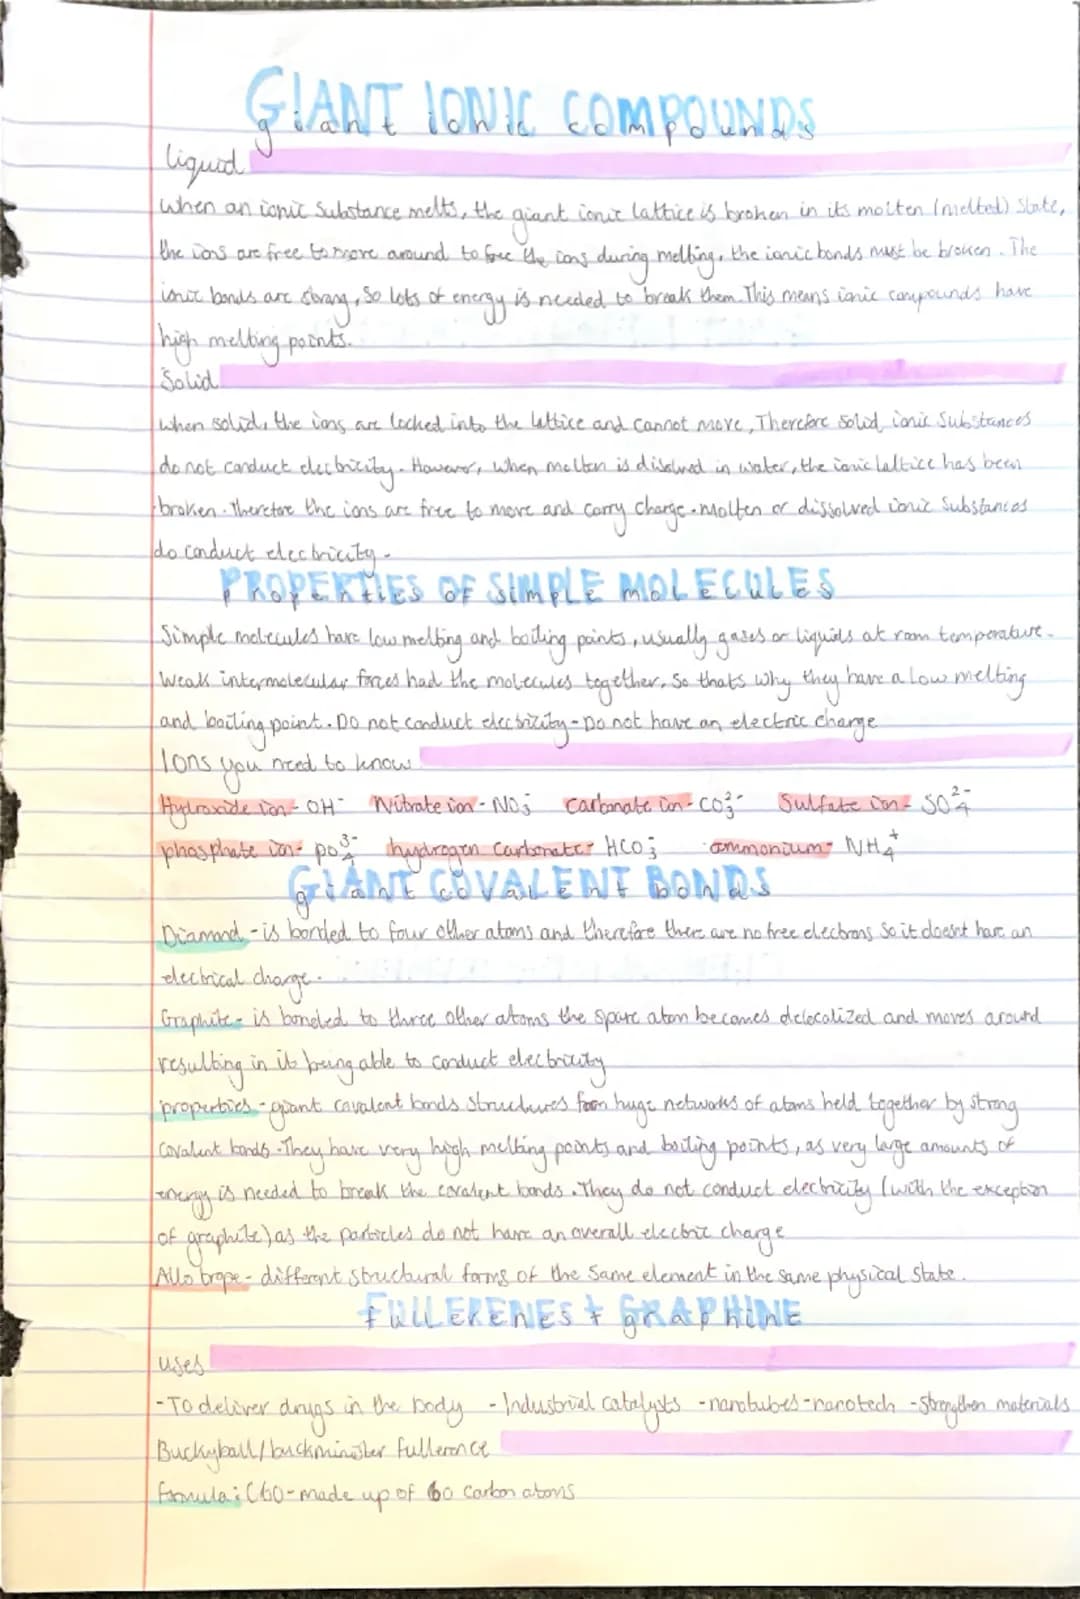 GIANT IONIC COMPOUNDS
giant ionic compounds
liquid
when an ionic substance melts, the giant ionic lattice is broken in its molten (melted) state,
the ions are free to move around to free the ions during melting, the ionic bonds must be broken. The
ionic bonds are strong, So lots of energy is needed to break them. This means ionic compounds have
high melting points.
Solid
when solid, the ions are locked into the lattice and cannot move, Therefore solid ionic Substances
do not conduct electricity. However, when molten is disolved in water, the ionic lattice has been
broken. Therefore the ions are free to move and carry charge. molten or dissolved ionic Substances
do conduct electricity.
PROPERTIES OF SIMPLE MOLECULES
Simple molecules have low melting and boiling points, usually gases or liquids at room temperature.
Weak intermolecular forces had the molecules together, So thats why they have a low melting
and boiling point. Do not conduct electrizity - Do not have an electric charge
Ions you need to know
Hydroxide ion - OH⁻ Nitrate ion - NO₃⁻ Carbonate ion - CO₃²⁻ Sulfate ion - SO₄²⁻
phosphate ion - po₄³⁻ hydrogen Carbonate - HCO₃⁻ ammonium - NH₄⁺
GIANT COVALENT BONDS
giant covalent bonds
Diamond - is bonded to four other atoms and therefore there are no free electrons So it doesnt have an
electrical charge.
Graphite - is bonded to three other atoms the spare atom becomes delocalized and moves around
resulting in it being able to conduct electricity
properties - giant covalent bonds structures form huge networks of atoms held together by strong
covalent bonds. They have very high melting points and boiling points, as very large amounts of
energy is needed to break the covalent bonds. They do not conduct electricity (with the exception
of graphite) as the particles do not have an overall electric charge
Allotrope - different structural forms of the same element in the same physical state.
FULLERENES + GRAPHINE
uses
- To deliver drugs in the body - Industrial catalysts - nanotubes - nanotech - Strengthen materials
Buckyball/buckminster fullerence
formula: C60 - made up of 60 carbon atoms